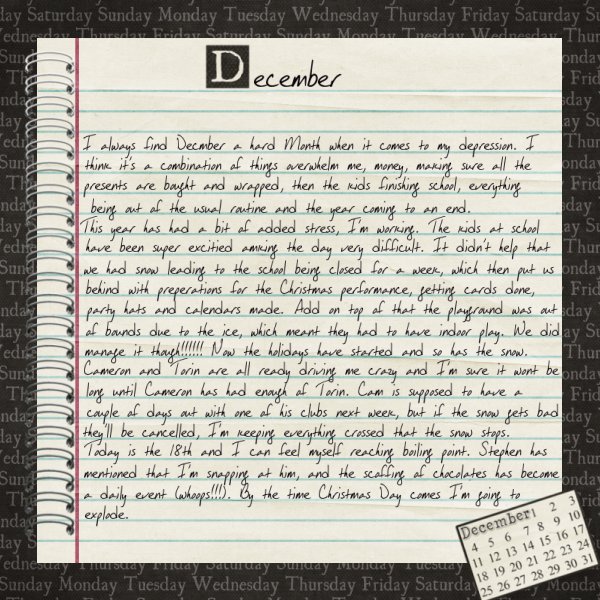 December
I always find Decmber a hard Month when it comes to my depression. I
think it's a combination of things overwhelm me, money, making sure all the
presents are bought and wrapped, then the kids finishing school, everything
being out of the usual routine and the year coming to an end.
This year has had a bit of added stress, I'm working. The kids at school
have been super excitied amking the day very difficult. It didn't help that
we had snow leading to the school being closed for a week, which then put us
behind with preperations for the Christmas performance, getting cards done,
party hats and calendars made. Add on top of that the playground was out
of bounds due to the ice, which meant they had to have indoor play. We did
manage it though!!!!!! Now the holidays have started and so has the snow.
Cameron and Torin are all ready driving me crazy and I'm sure it wont be
long until Cameron has had enough of Torin. Cam is supposed to have a
couple of days out with one of his clubs next week, but if the snow gets bad
they'll be cancelled, I'm keeping everything crossed that the snow stops.
Today is the 18th and I can feel myself reaching boiling point. Stephen has
mentioned that I'm snapping at him, and the scoffing of chocolates has become
a daily event (whoops!!!). By the time Christmas Day comes I'm going to
explode.
December 1 2 3
4 5 6 7 8 9 10
11 12 13 14 15 16 17
18 19 20 21 22 23 24
25 26 27 28 29 30 31